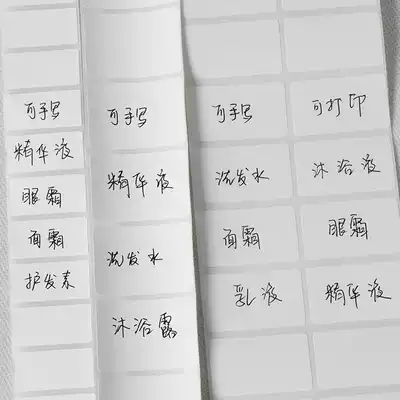 可手写
精华液
眼霜
面霜
护发素
可手写
精华液
洗发水
沐浴露
可手写
洗发水
面霜
乳液
可打印
沐浴液
眼霜
精华液